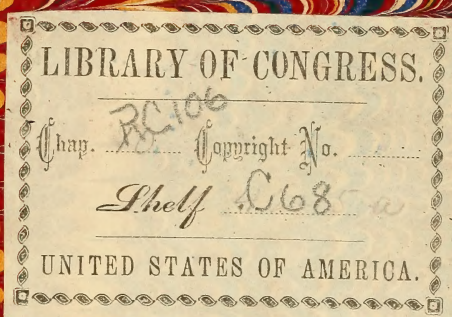 LIBRARY OF CONGRESS.
Chap. RC106 Copyright No.
Shelf .C68
UNITED STATES OF AMERICA.